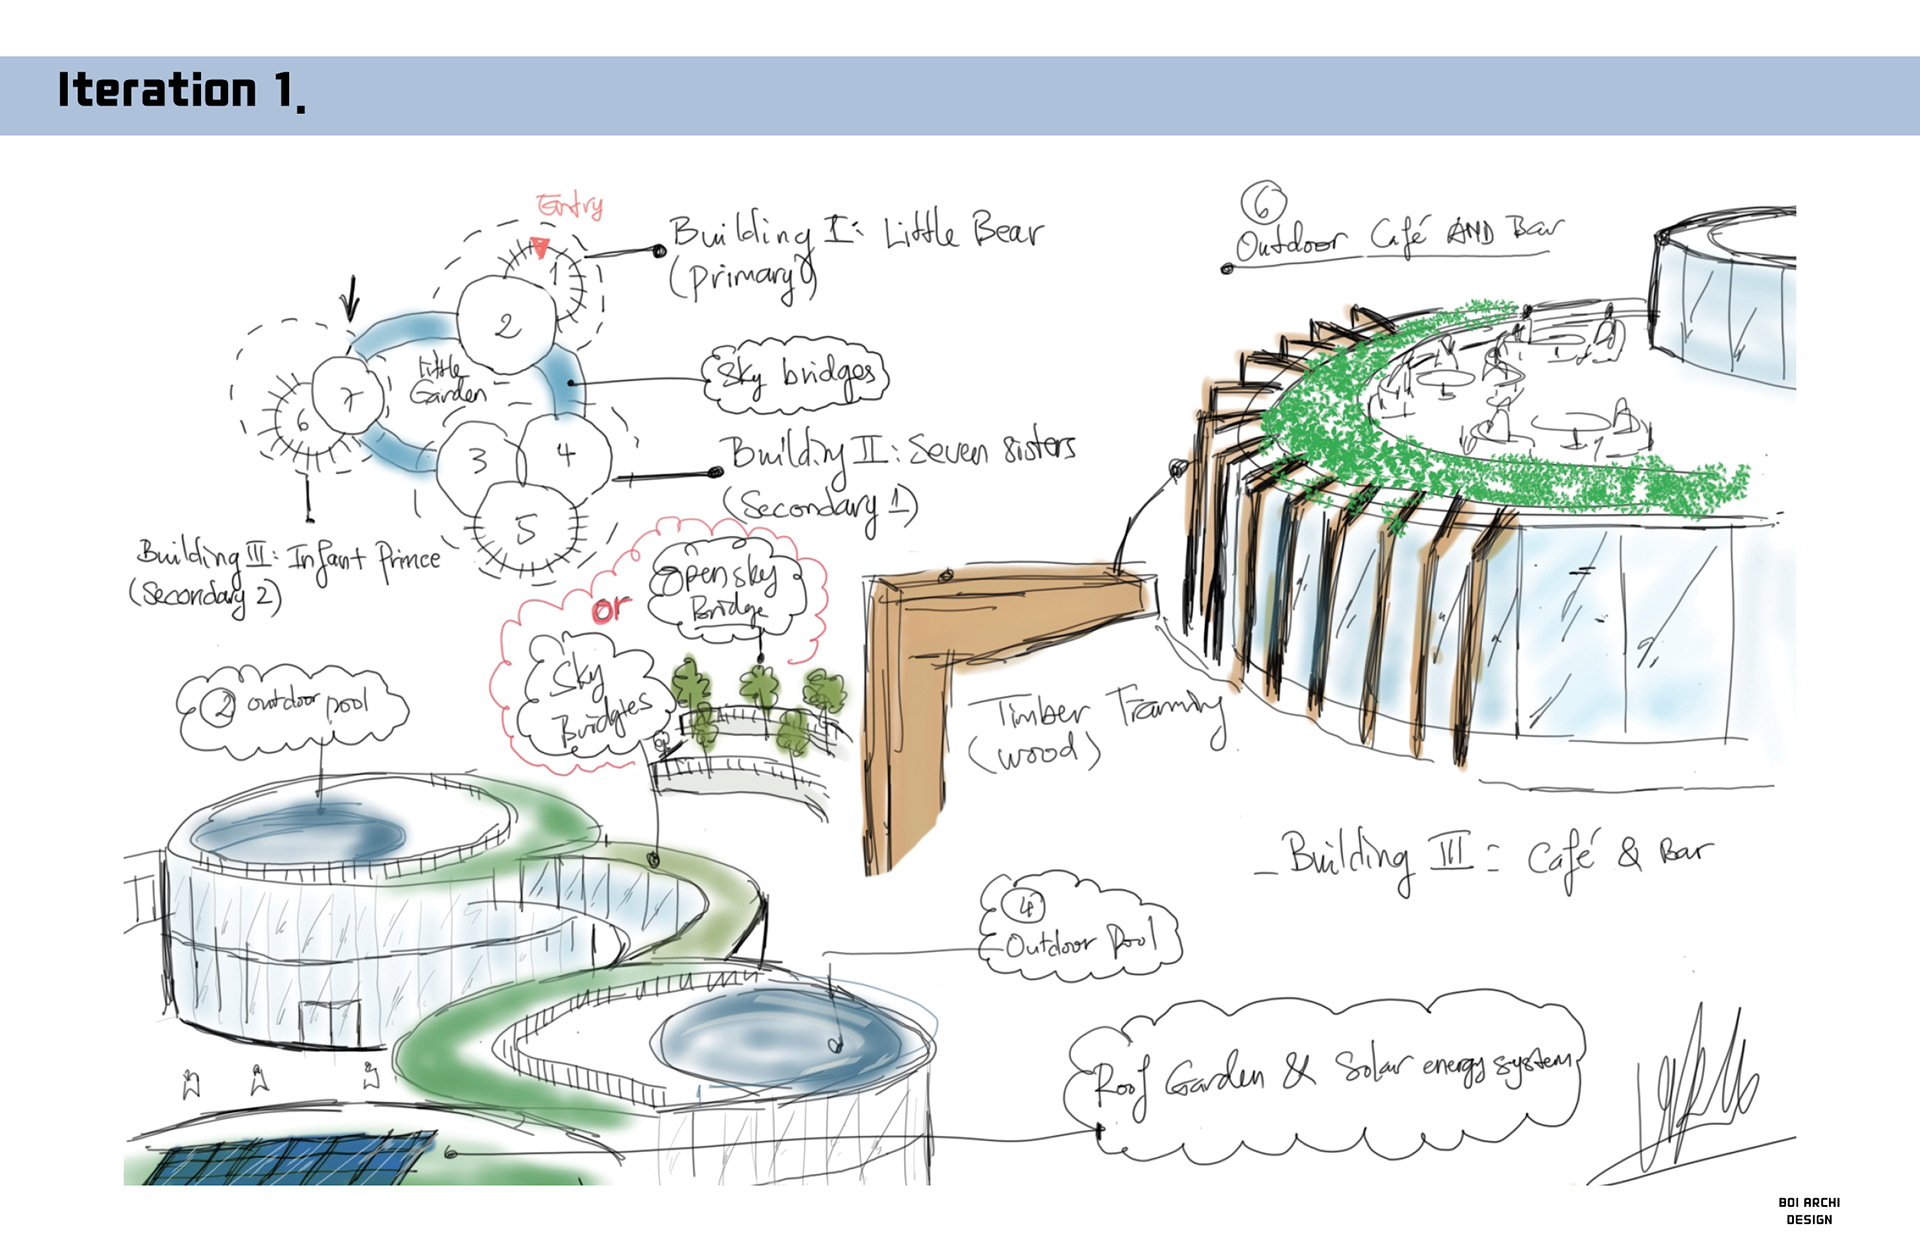 Iteration 1.
Entry
1
2
Building I: Little Bear
(Primary)
Little
Garden
7
6
3
4
5
Sky bridges
Building II: Seven sisters
(Secondary 1)
Building III: Infant Prince
(Secondary 2)
or
Open sky
Bridge
Sky
Bridgies
2 outdoor pool
6
Outdoor Café AND Bar
Timber Framing
(wood)
_ Building III: Café & Bar
4
Outdoor Pool
Roof Garden & Solar energy system
BOI ARCHI
DESIGN